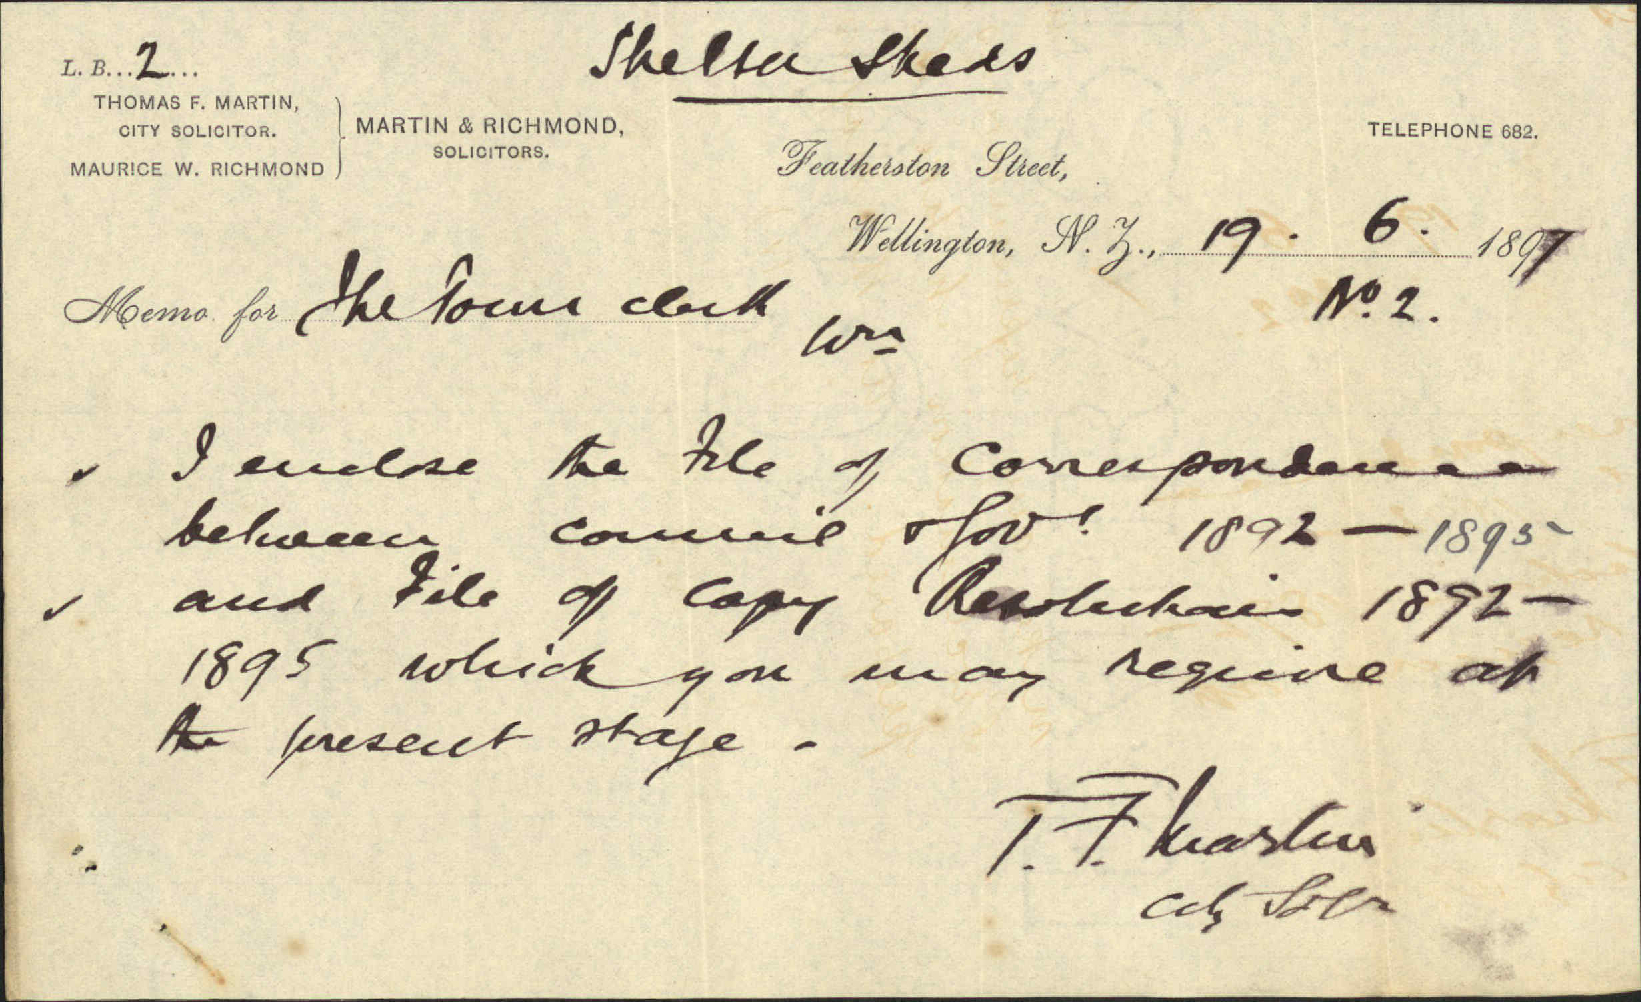 Shelter Sheds
L. B...2...
THOMAS F. MARTIN,
CITY SOLICITOR.
MAURICE W. RICHMOND
MARTIN & RICHMOND,
SOLICITORS.
TELEPHONE 682.
Featherston Street,
Wellington, N. Z., 19. 6. 1897
No. 2.
Memo for The Town Clerk
Wn
I enclose the File of Correspondence
between Council & Govt 1892 — 1895
and File of Copy Resolutions 1892 —
1895 which you may require at
the present stage.
T. F. Martin
City Solr